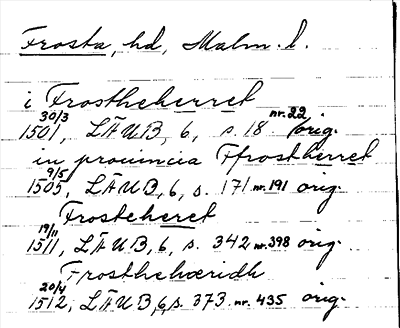 Frosta, hd, Malm. l.
i Frostheherret
30/3 1501, LÄUB, 6, s. 18 nr. 22 orig.
in prouincia Ffrostherret
9/5 1505, LÄUB, 6, s. 171 nr. 191 orig.
Frosteheret
19/11 1511, LÄUB, 6, s. 342 nr. 398 orig.
Frosthehæridh
20/4 1512, LÄUB, 6, s. 373. nr. 435 orig.